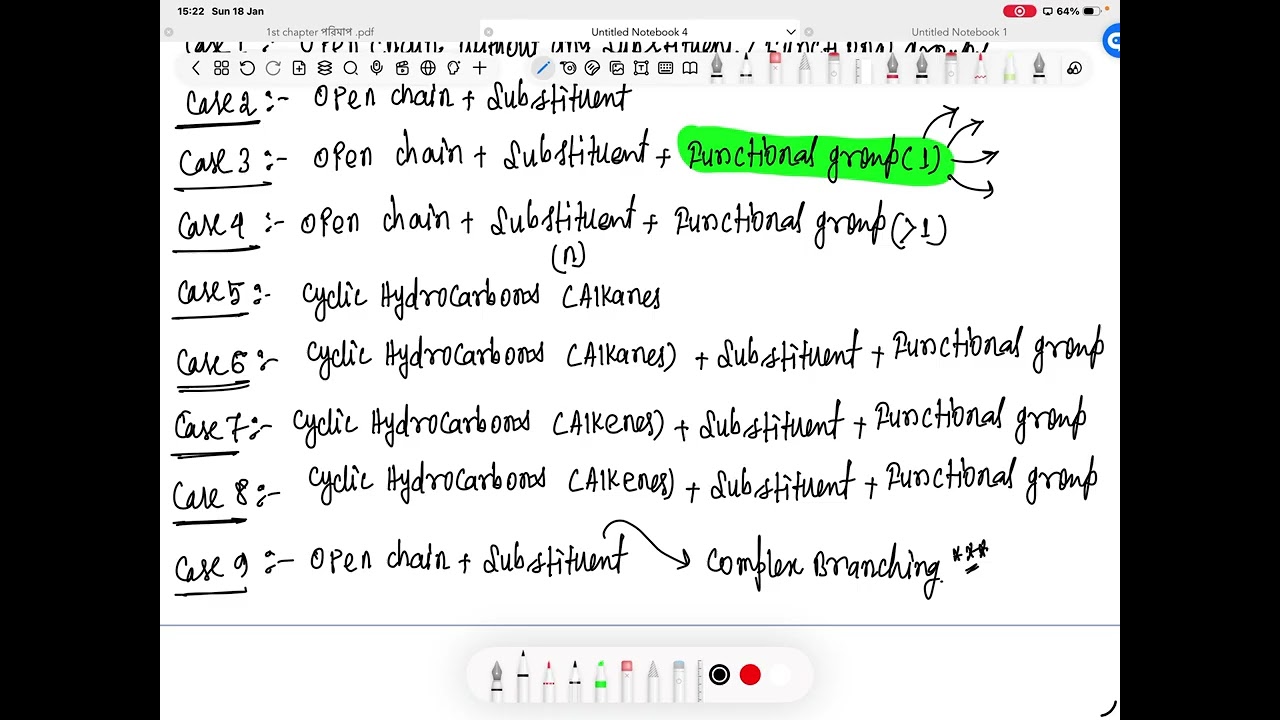 15:22 Sun 18 Jan
64%
1st chapter পরিমাপ .pdf
Untitled Notebook 4
Untitled Notebook 1
Case 1 :- Open chain, without any substituent / Functional group
Case 2 :- Open chain + Substituent
Case 3 :- Open chain + Substituent + Functional group (1)
Case 4 :- Open chain + Substituent + Functional group (>1)
(n)
Case 5 :- Cyclic Hydrocarbons (Alkanes
Case 6 :- Cyclic Hydrocarbons (Alkanes) + Substituent + Functional group
Case 7 :- Cyclic Hydrocarbons (Alkenes) + Substituent + Functional group
Case 8 :- Cyclic Hydrocarbons (Alkenes) + Substituent + Functional group
Case 9 :- Open chain + Substituent → Complex Branching. ***